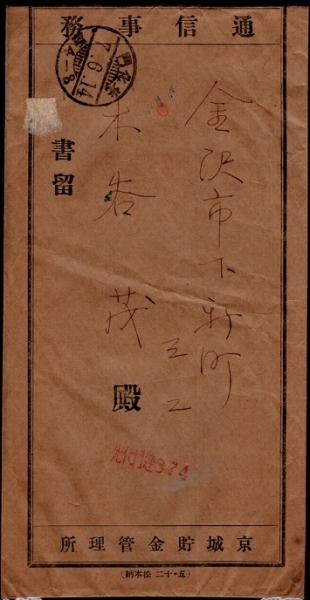 通信事務
金沢市下新町
三二
木谷茂 殿
書留
7.6.14
374
京城貯金管理所
(五・十二 松本納)